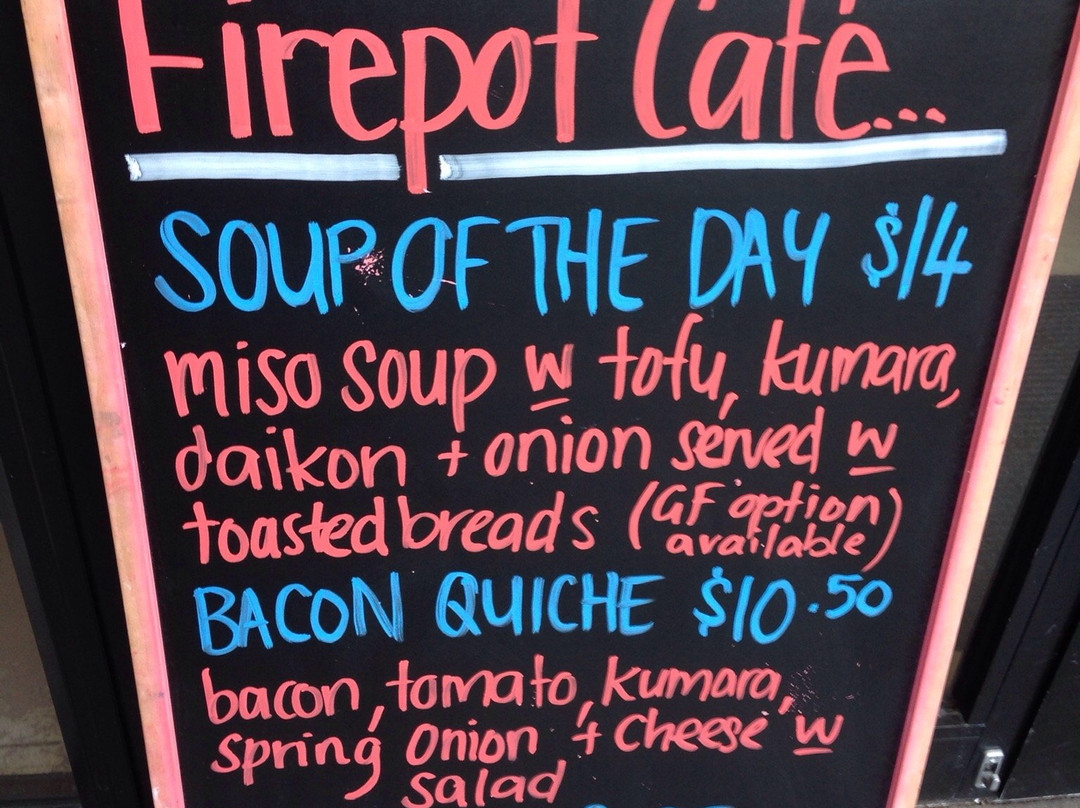 Firepot Café...
SOUP OF THE DAY $14
miso soup w tofu, kumara,
daikon + onion served w
toasted breads (GF option
available)
BACON QUICHE $10.50
bacon, tomato, kumara,
spring onion + cheese w
salad